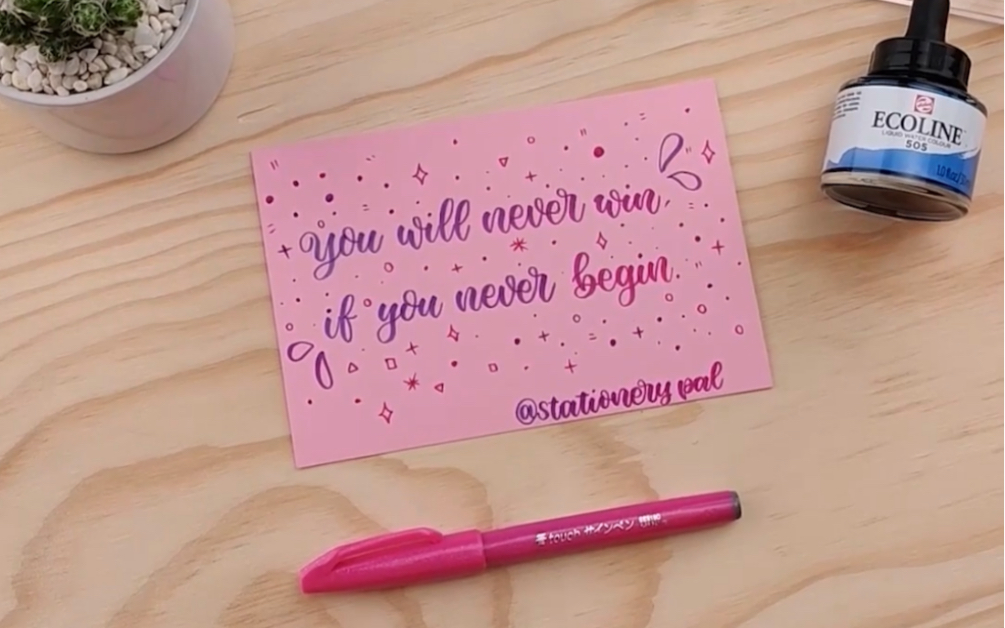 you will never win,
if you never begin.
@stationery pal
ECOLINE
LIQUID WATER COLOUR
505
筆touch サインペン